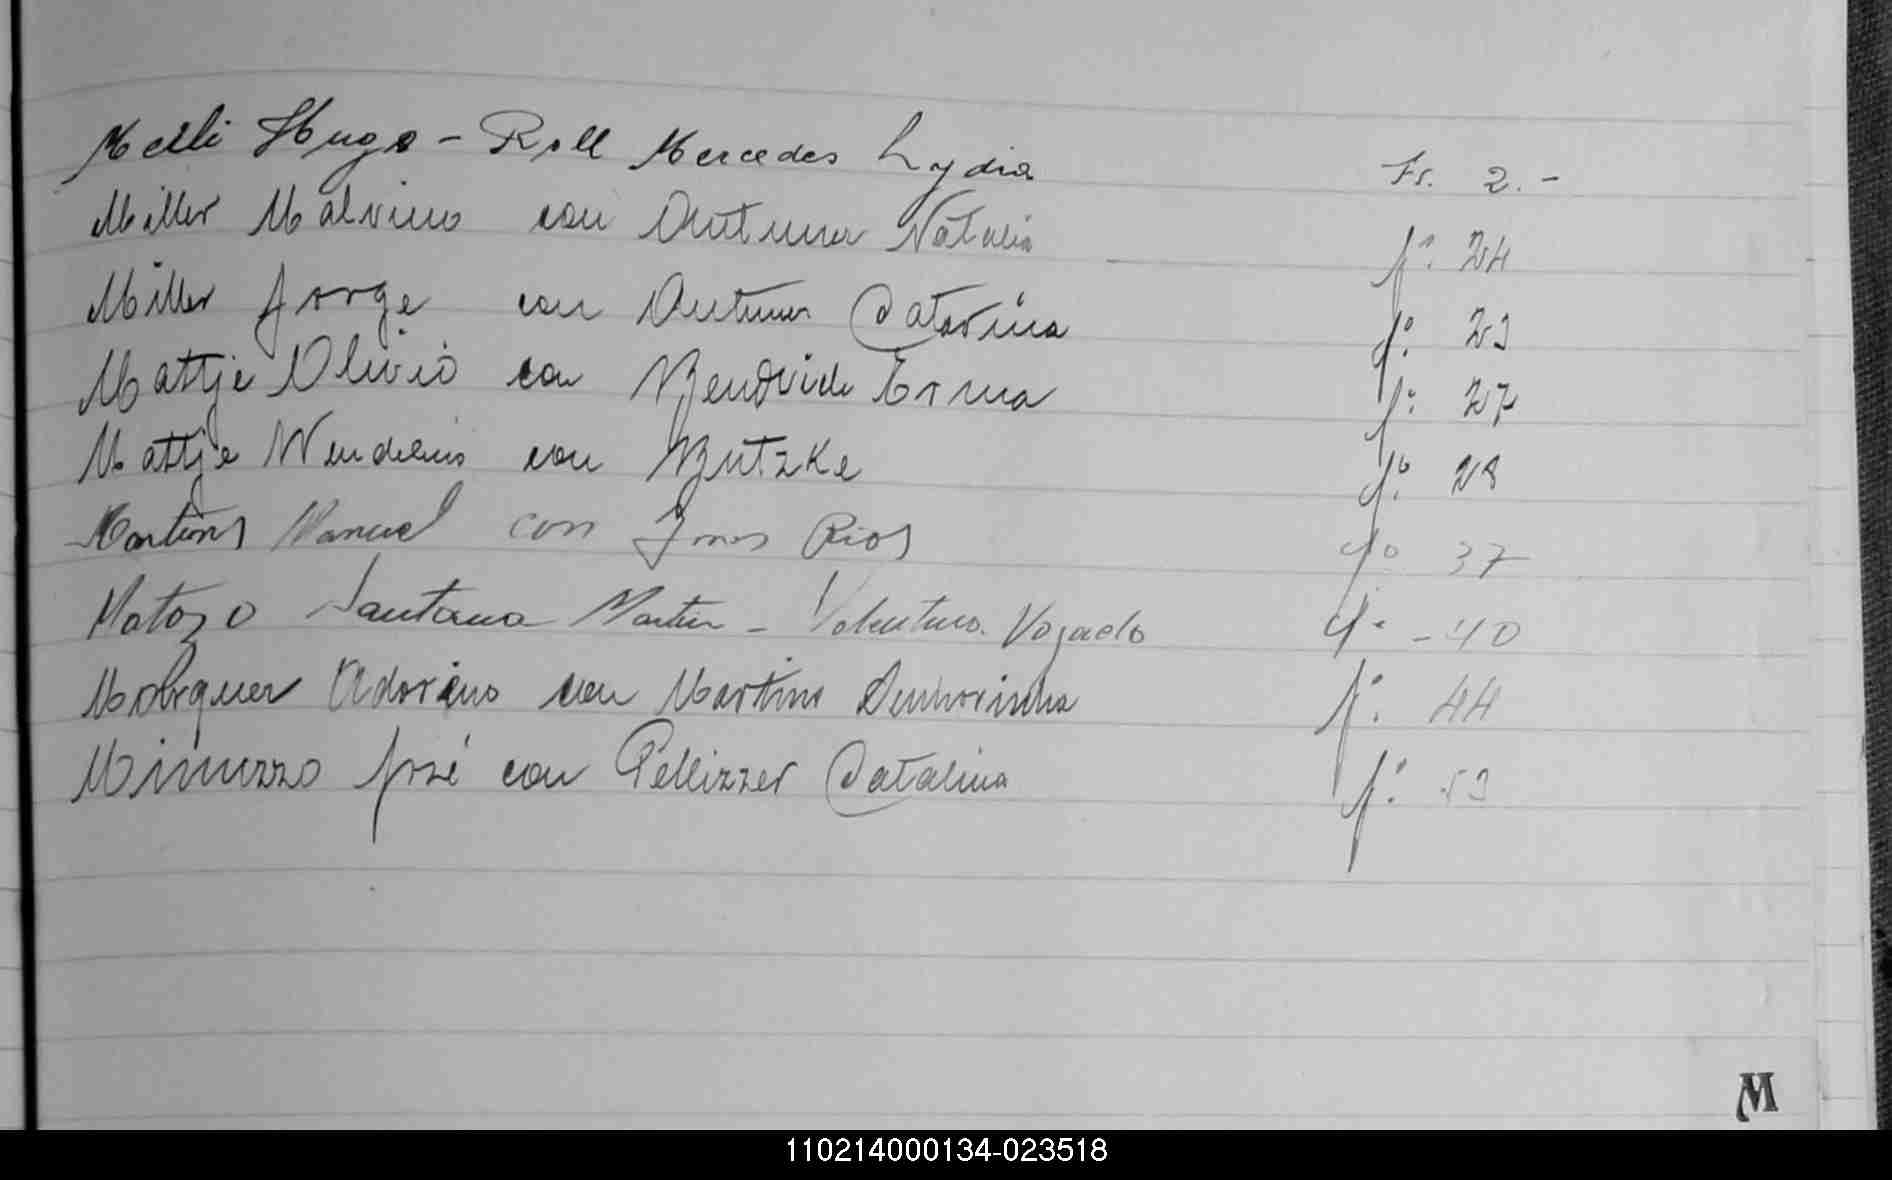 Melli Hugo - Roll Mercedes Lydia Fs. 2.-
Miller Malvino con Natalia fº. 24
Miller Jorge con Catarina fº. 23
Mattje Olivio con Erma fº. 27
Mattje Wendelino con Butzke fº. 28
Martins Manuel con Rios fº 37
Matozo Santana Martin - fº - 40
con Martins fº. 44
Minuzzo José con Pellizzer Catalina fº. 53
M
110214000134-023518